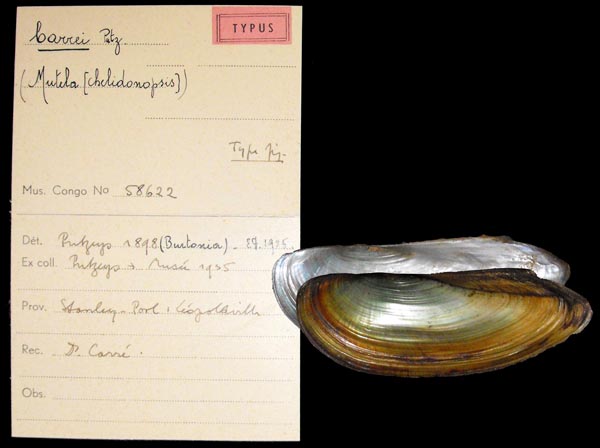 TYPUS
carrei Putz.
(Mutela [chelidonopsis])
Type fig.
Mus. Congo No 58622
Dét. Putzeys 1898 (Burtonia)
Ex coll. Putzeys → Musée 1935
Prov. Stanley-Pool, Léopoldville
Rec. Dr. Carré.
Obs.